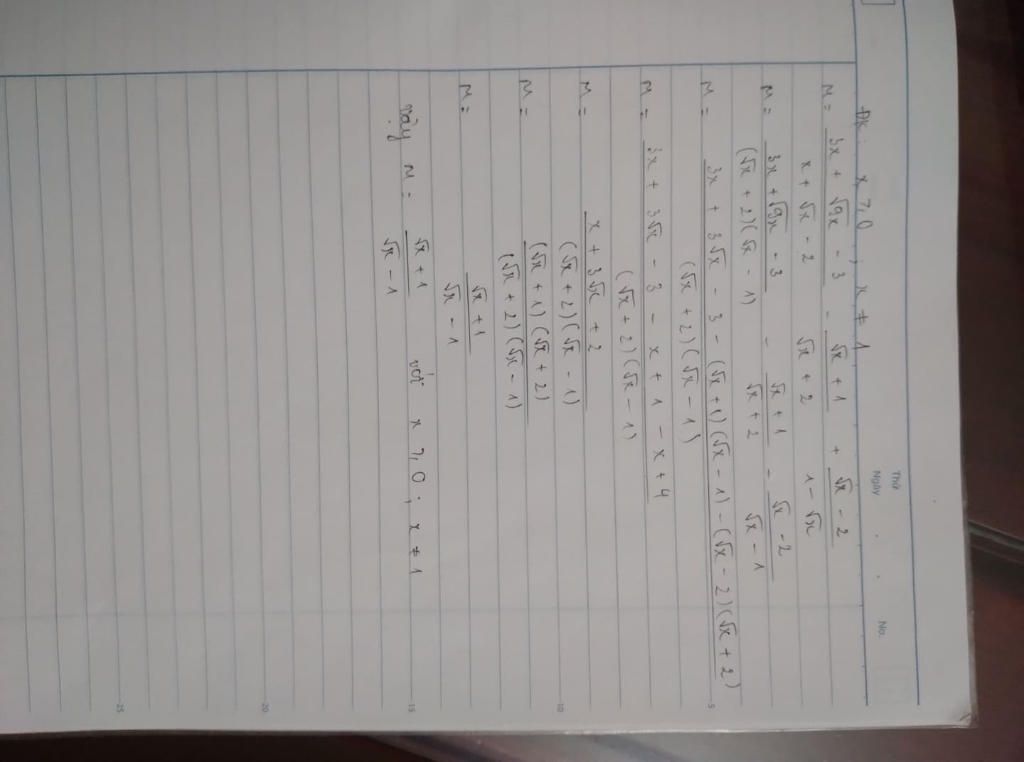 Thứ
Ngày . . No.
ĐK: x ⩾ 0 ; x ≠ 1
M = (3x + √9x - 3)/(x + √x - 2) - (√x + 1)/(√x + 2) + (√x - 2)/(1 - √x)
M = (3x + √9x - 3)/((√x + 2)(√x - 1)) - (√x + 1)/(√x + 2) - (√x - 2)/(√x - 1)
M = (3x + 3√x - 3 - (√x + 1)(√x - 1) - (√x - 2)(√x + 2))/((√x + 2)(√x - 1))
M = (3x + 3√x - 3 - x + 1 - x + 4)/((√x + 2)(√x - 1))
M = (x + 3√x + 2)/((√x + 2)(√x - 1))
M = ((√x + 1)(√x + 2))/((√x + 2)(√x - 1))
M = (√x + 1)/(√x - 1)
Vậy M = (√x + 1)/(√x - 1) với x ⩾ 0 ; x ≠ 1
5
10
15
20
25